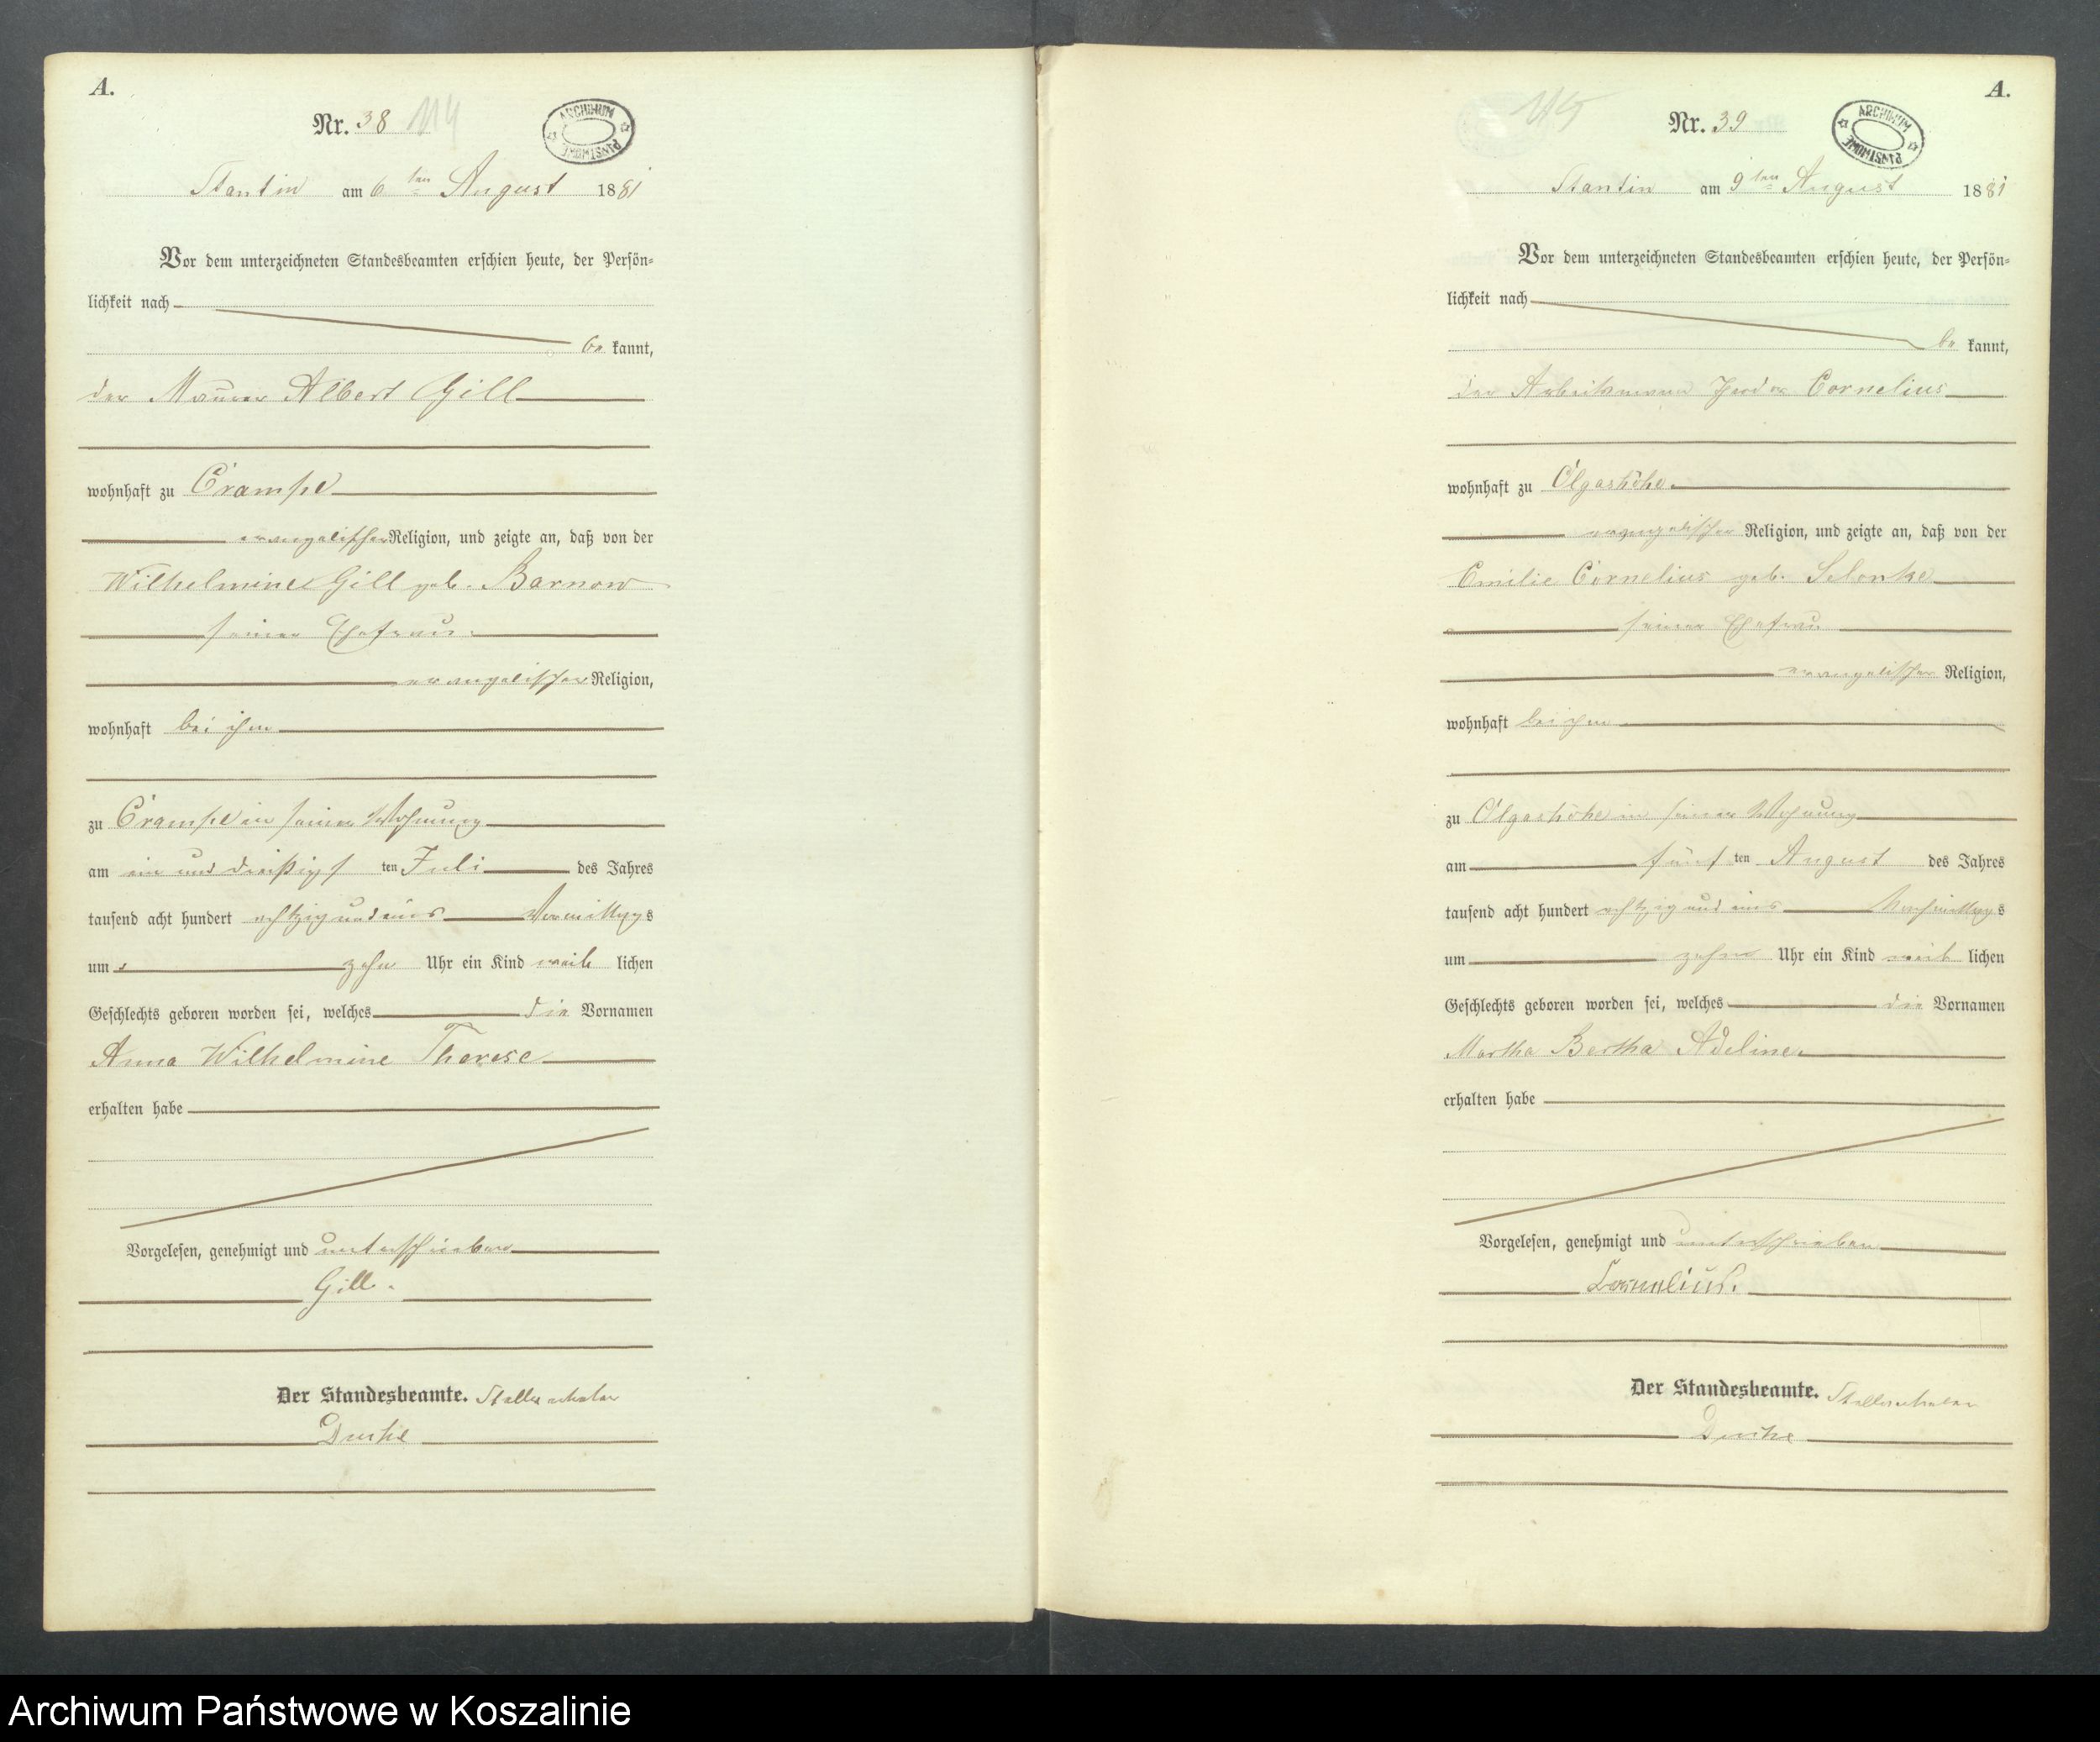 A.
Nr. 38 114
ARCHIWUM PAŃSTWOWE
Stantin am 6 ten August 1881
Vor dem unterzeichneten Standesbeamten erschien heute, der Persön-
lichkeit nach
be kannt,
der Maurer Albert Gill
wohnhaft zu Crampe
evangelischer Religion, und zeigte an, daß von der
Wilhelmine Gill geb. Barnow
seiner Ehefrau
evangelischer Religion,
wohnhaft bei ihm
zu Crampe in seiner Wohnung
am ein und dreißigs ten Juli des Jahres
tausend acht hundert achtzig und eins Vormittags
um zehn Uhr ein Kind weib lichen
Geschlechts geboren worden sei, welches die Vornamen
Anna Wilhelmine Therese
erhalten habe
Vorgelesen, genehmigt und unterschrieben
Gill.
Der Standesbeamte. Stellvertreter
A.
115 Nr. 39
ARCHIWUM PAŃSTWOWE
Stantin am 9 ten August 1881
Vor dem unterzeichneten Standesbeamten erschien heute, der Persön-
lichkeit nach
be kannt,
der Arbeitsmann Cornelius
wohnhaft zu Olgashöhe.
evangelischer Religion, und zeigte an, daß von der
Emilie Cornelius geb. Selonke
seiner Ehefrau
evangelischer Religion,
wohnhaft bei ihm
zu Olgashöhe in seiner Wohnung
am fünf ten August des Jahres
tausend acht hundert achtzig und eins Nachmittags
um zehn Uhr ein Kind weib lichen
Geschlechts geboren worden sei, welches die Vornamen
Martha Bertha Adeline
erhalten habe
Vorgelesen, genehmigt und unterschrieben
Cornelius.
Der Standesbeamte. Stellvertreter
Archiwum Państwowe w Koszalinie